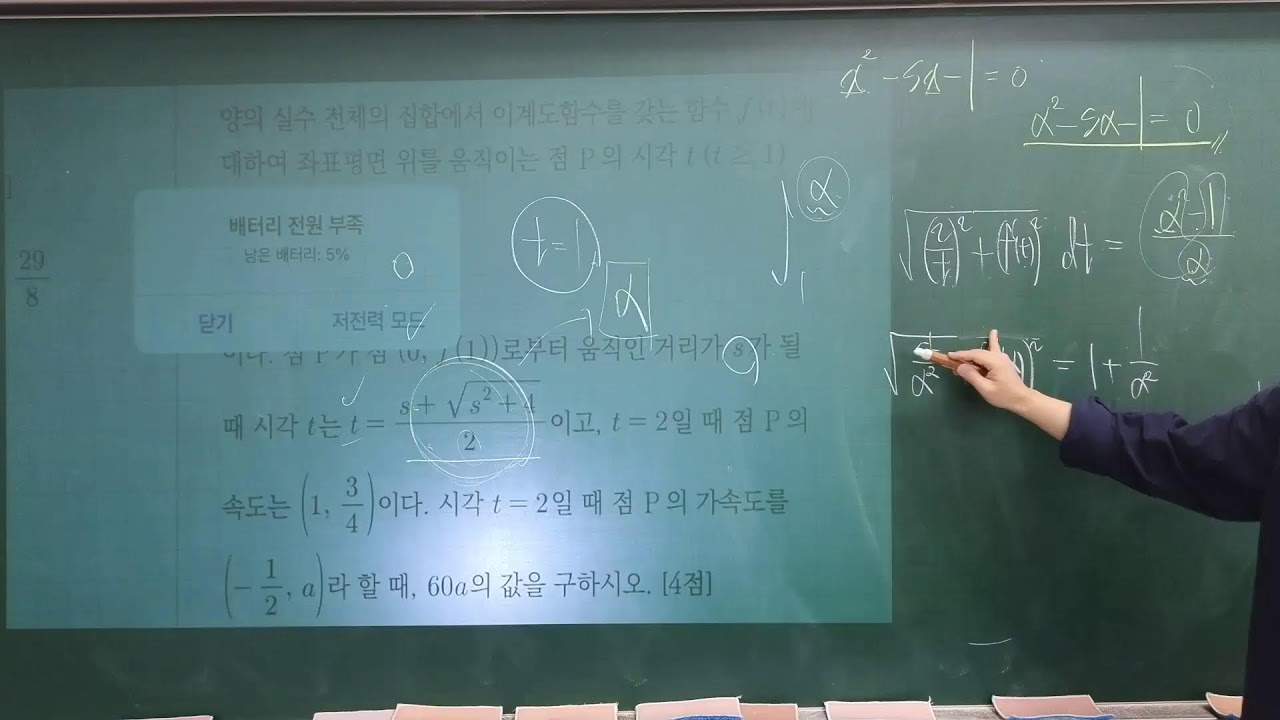 양의 실수 전체의 집합에서 이계도함수를 갖는 함수 f(t)에
대하여 좌표평면 위를 움직이는 점 P의 시각 t (t ≥ 1)
배터리 전원 부족
남은 배터리: 5%
닫기 저전력 모드
이다. 점 P가 점 (0, f(1))로부터 움직인 거리가 s가 될
때 시각 t는 t = (s + √(s² + 4))/2 이고, t = 2일 때 점 P의
속도는 (1, 3/4)이다. 시각 t = 2일 때 점 P의 가속도를
(-1/2, a)라 할 때, 60a의 값을 구하시오. [4점]
29/8
0
t = 1
α
α² - sα - 1 = 0
α² - sα - 1 = 0
∫₁^α √((2/t)² + (f'(t))²) dt = (α² - 1)/α
= 1 + 1/α²